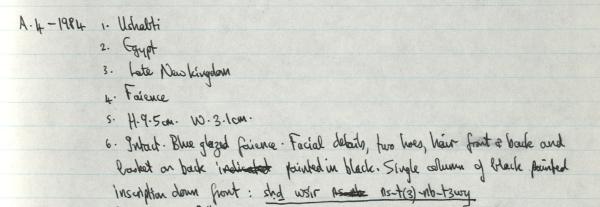 A.4-1984 1. Ushabti
2. Egypt
3. Late New Kingdom
4. Faience
5. H. 9.5cm. W. 3.1cm.
6. Intact. Blue glazed faience. Facial details, two hoes, hair front & back and
basket on back indicated painted in black. Single column of black painted
inscription down front : shd wsir ns-t(3)-nb-t3wy